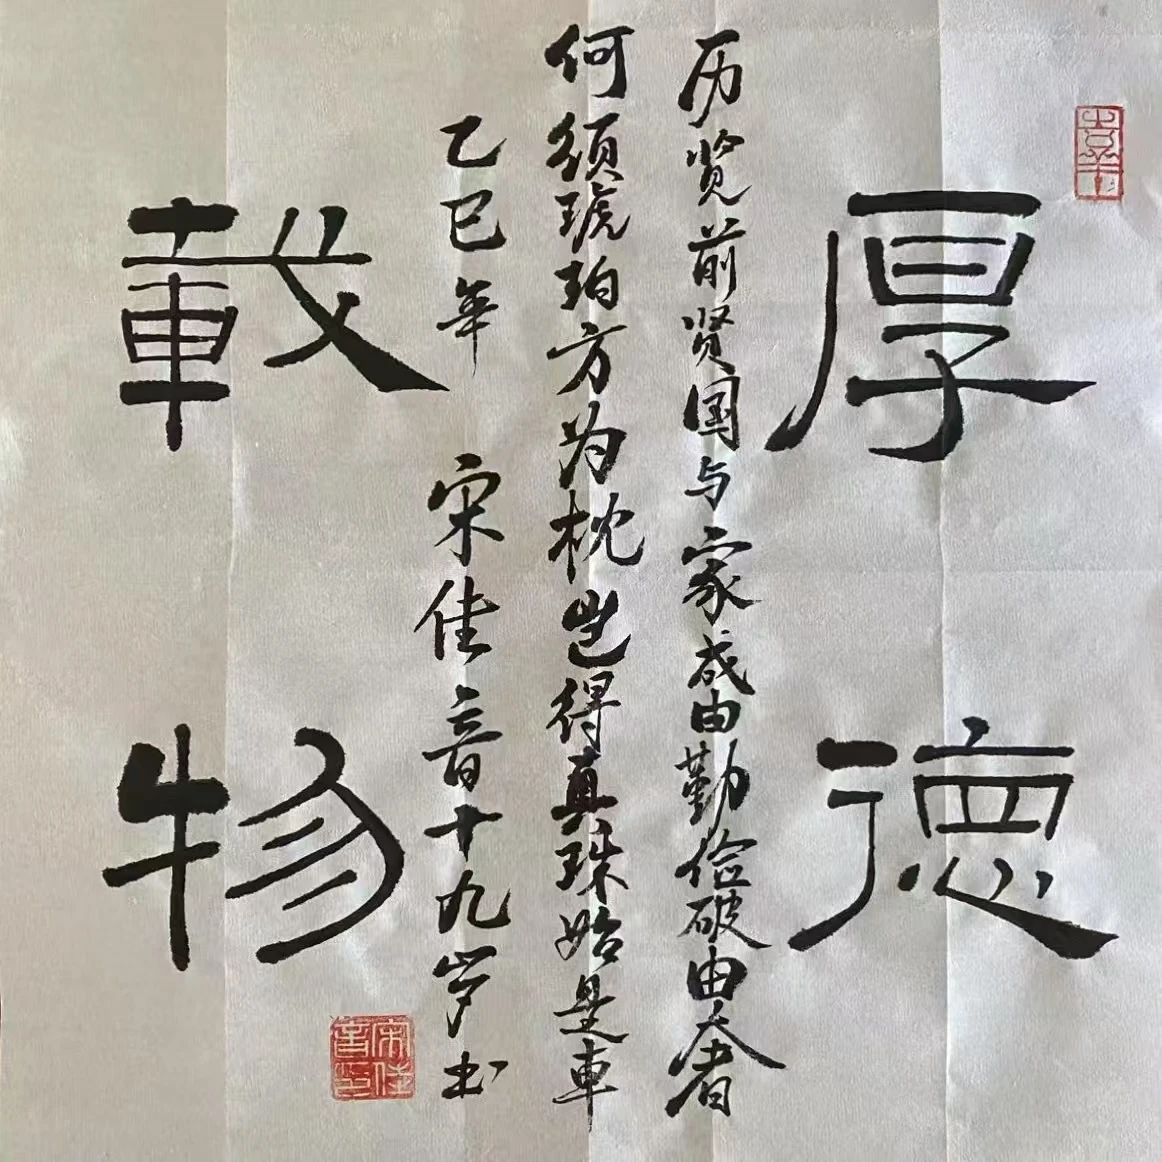 厚德
历览前贤国与家成由勤俭破由奢
何须琥珀方为枕岂得真珠始是車
乙巳年 宋佳音十九岁书
載物
宋佳音印